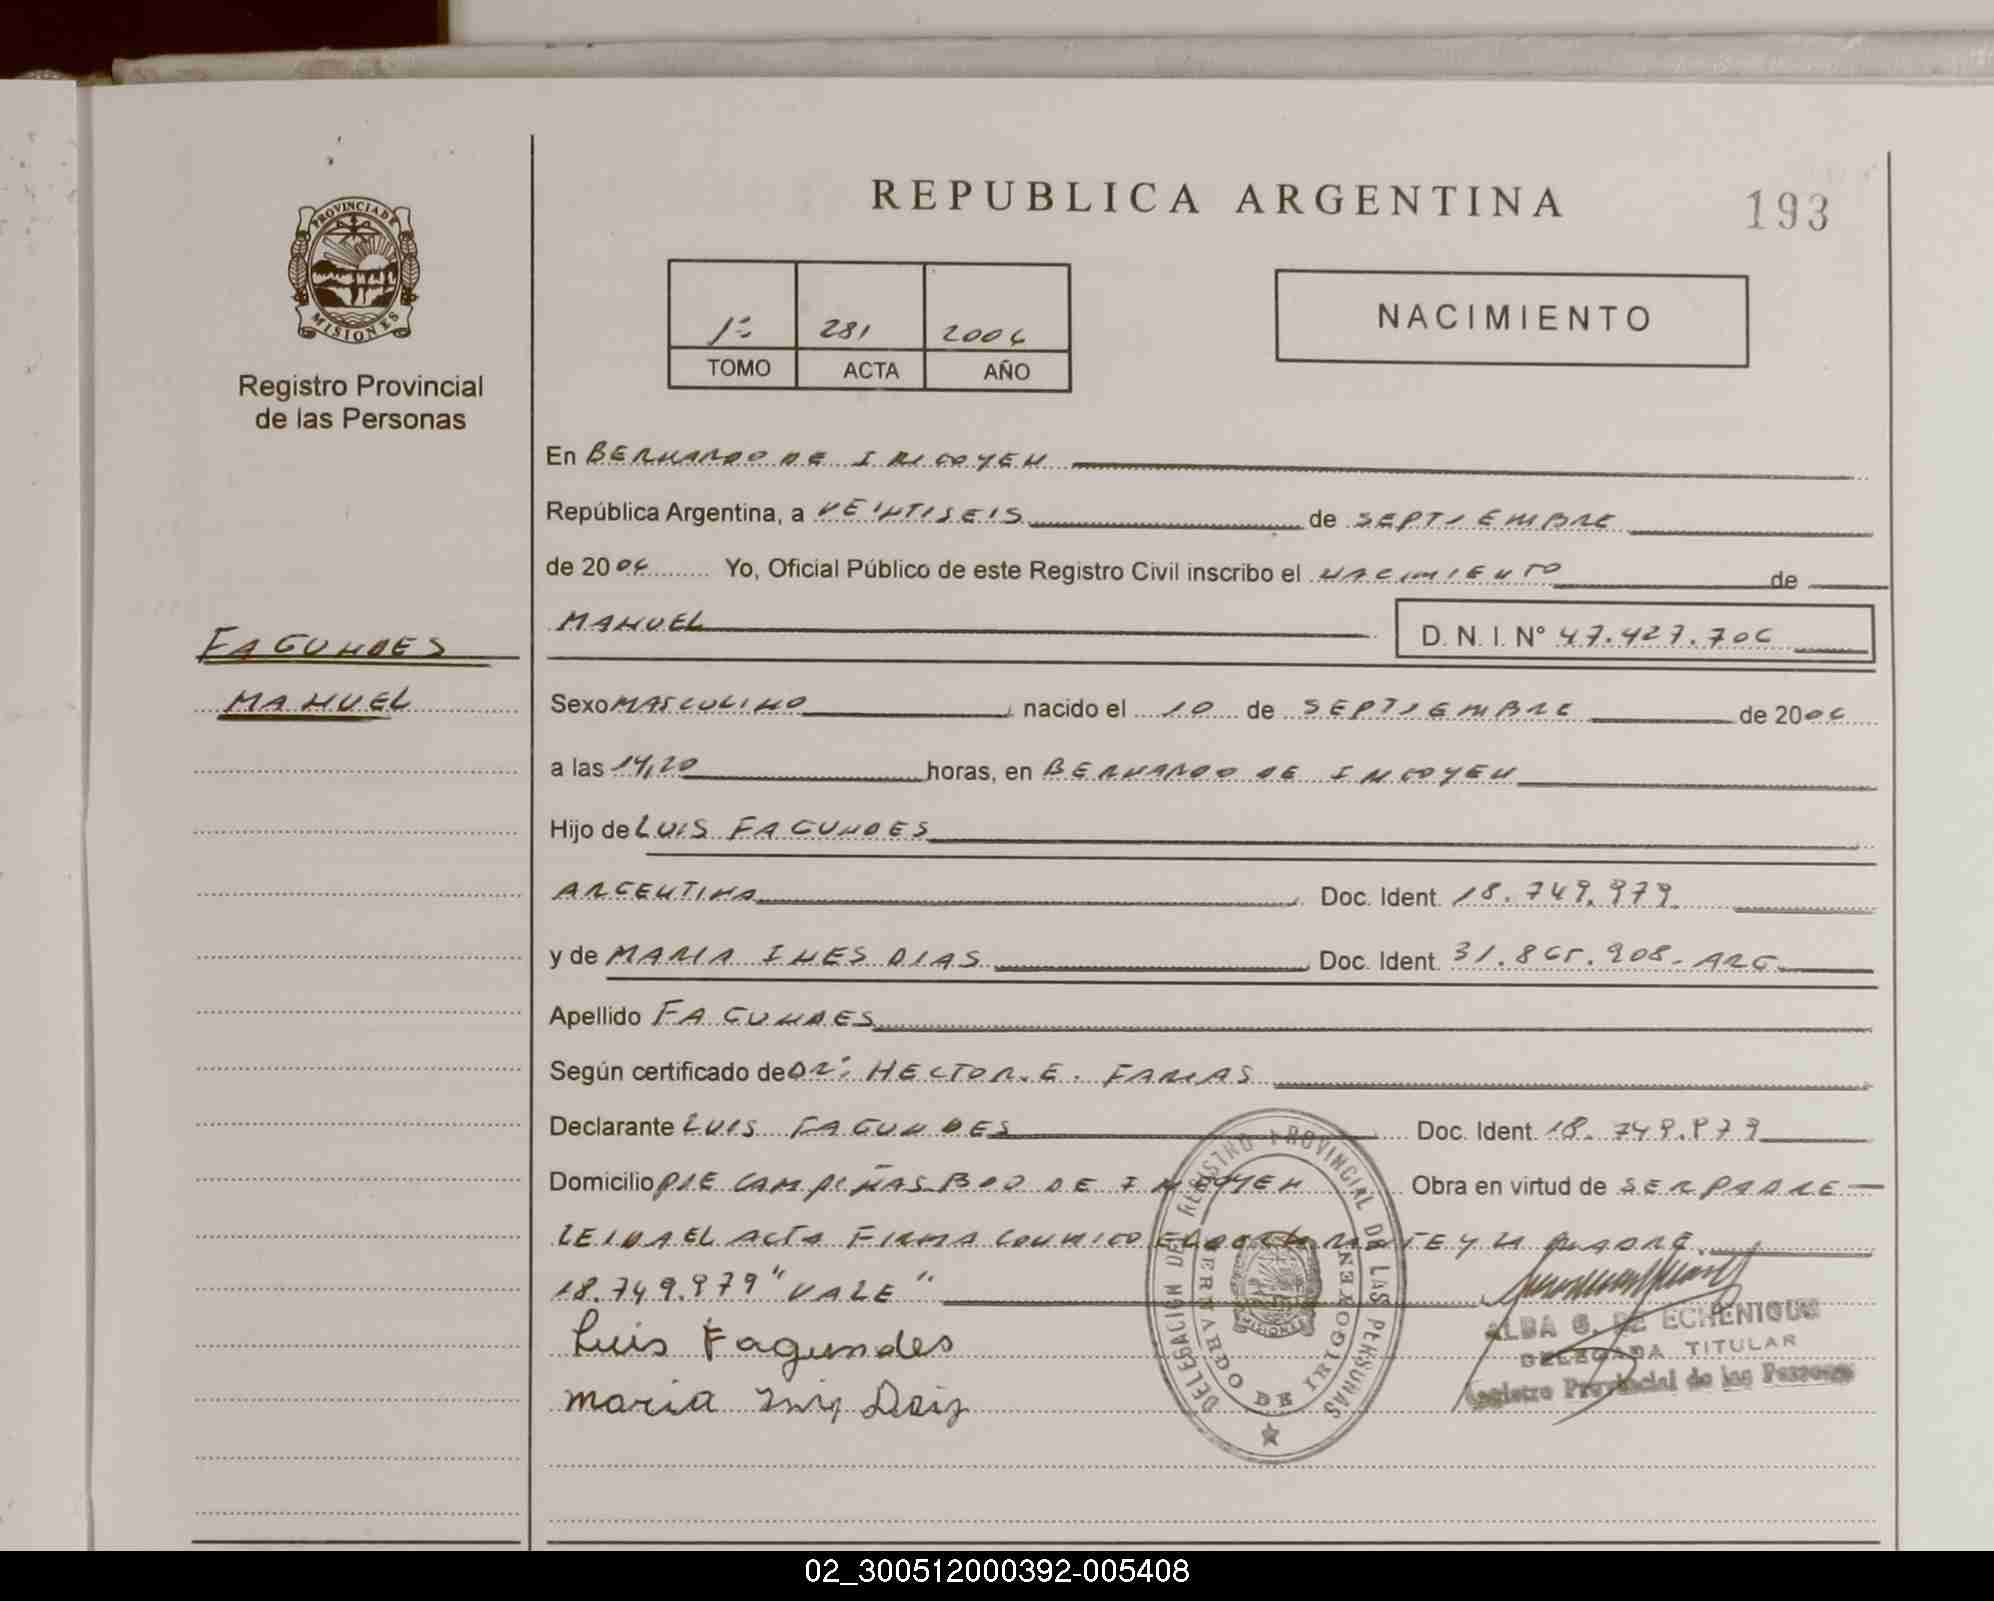 REPUBLICA ARGENTINA
193
PROVINCIA DE
MISIONES
Registro Provincial
de las Personas
1º 281 2006
TOMO ACTA AÑO
NACIMIENTO
En BERNARDO DE IRIGOYEN
República Argentina, a VEINTISEIS de SEPTIEMBRE
de 2006 Yo, Oficial Público de este Registro Civil inscribo el NACIMIENTO de
MANUEL
D. N. I. N° 47.427.706
FAGUNDES
MANUEL
Sexo MASCULINO, nacido el 10 de SEPTIEMBRE de 2006
a las 14,20 horas, en BERNARDO DE IRIGOYEN
Hijo de LUIS FAGUNDES
ARGENTINA Doc. Ident. 18.749.979
y de MARIA INES DIAS Doc. Ident. 31.865.908- ARG.
Apellido FAGUNDES
Según certificado de DR: HECTOR.E. FARIAS
Declarante LUIS FAGUNDES Doc. Ident. 18.749.979
Domicilio PJE CAMPIÑAS BDO DE IRIGOYEN Obra en virtud de SER PADRE
LEIDA EL ACTA FIRMA CONMIGO EL DECLARANTE Y LA MADRE.
18.749.979 "VALE"
Luis Fagundes
maria Diaz
DELEGACION DEL REGISTRO PROVINCIAL DE LAS PERSONAS
BERNARDO DE IRIGOYEN
MISIONES
ALBA G. DE ECHENIQUE
DELEGADA TITULAR
Registro Provincial de las Personas
02_300512000392-005408